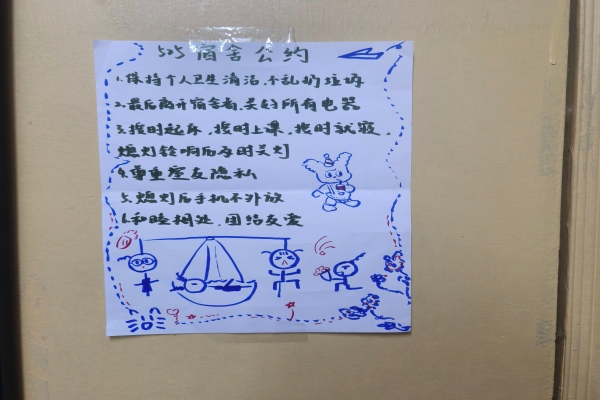 525宿舍公约
1.保持个人卫生清洁,不乱扔垃圾
2.最后离开宿舍者,关好所有电器
3.按时起床,按时上课,按时就寝,
熄灯铃响后及时关灯
4.尊重室友隐私
5.熄灯后手机不外放
6.和睦相处,团结友爱